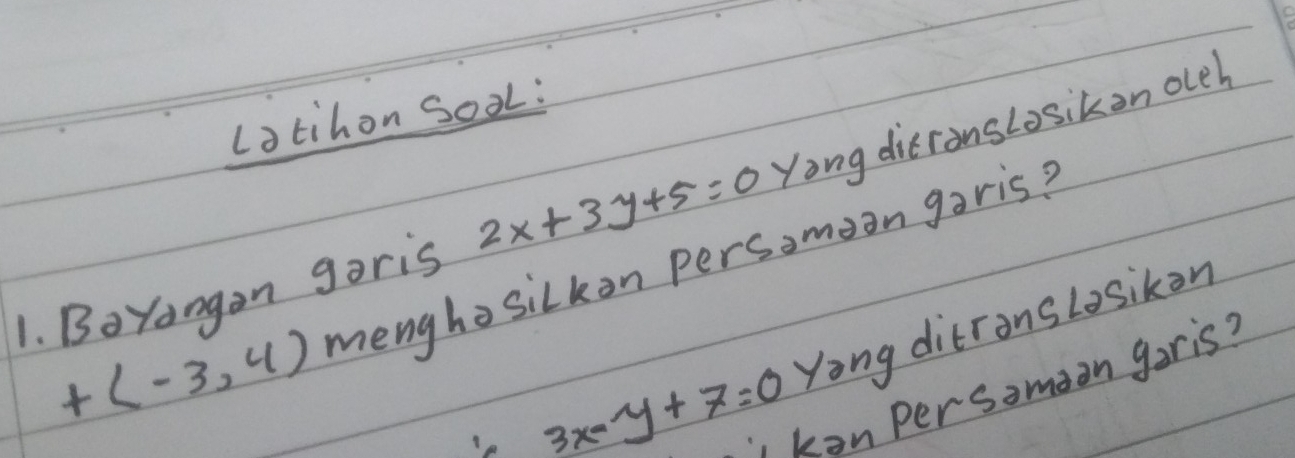 Latihan Soal:
1. Bayangan garis 2x+3y+5=0 yang ditranslasikan oleh
+(-3,4) menghasilkan persamaan garis?
3x-y+7=0 yang ditranslasikan
kan persamaan garis?